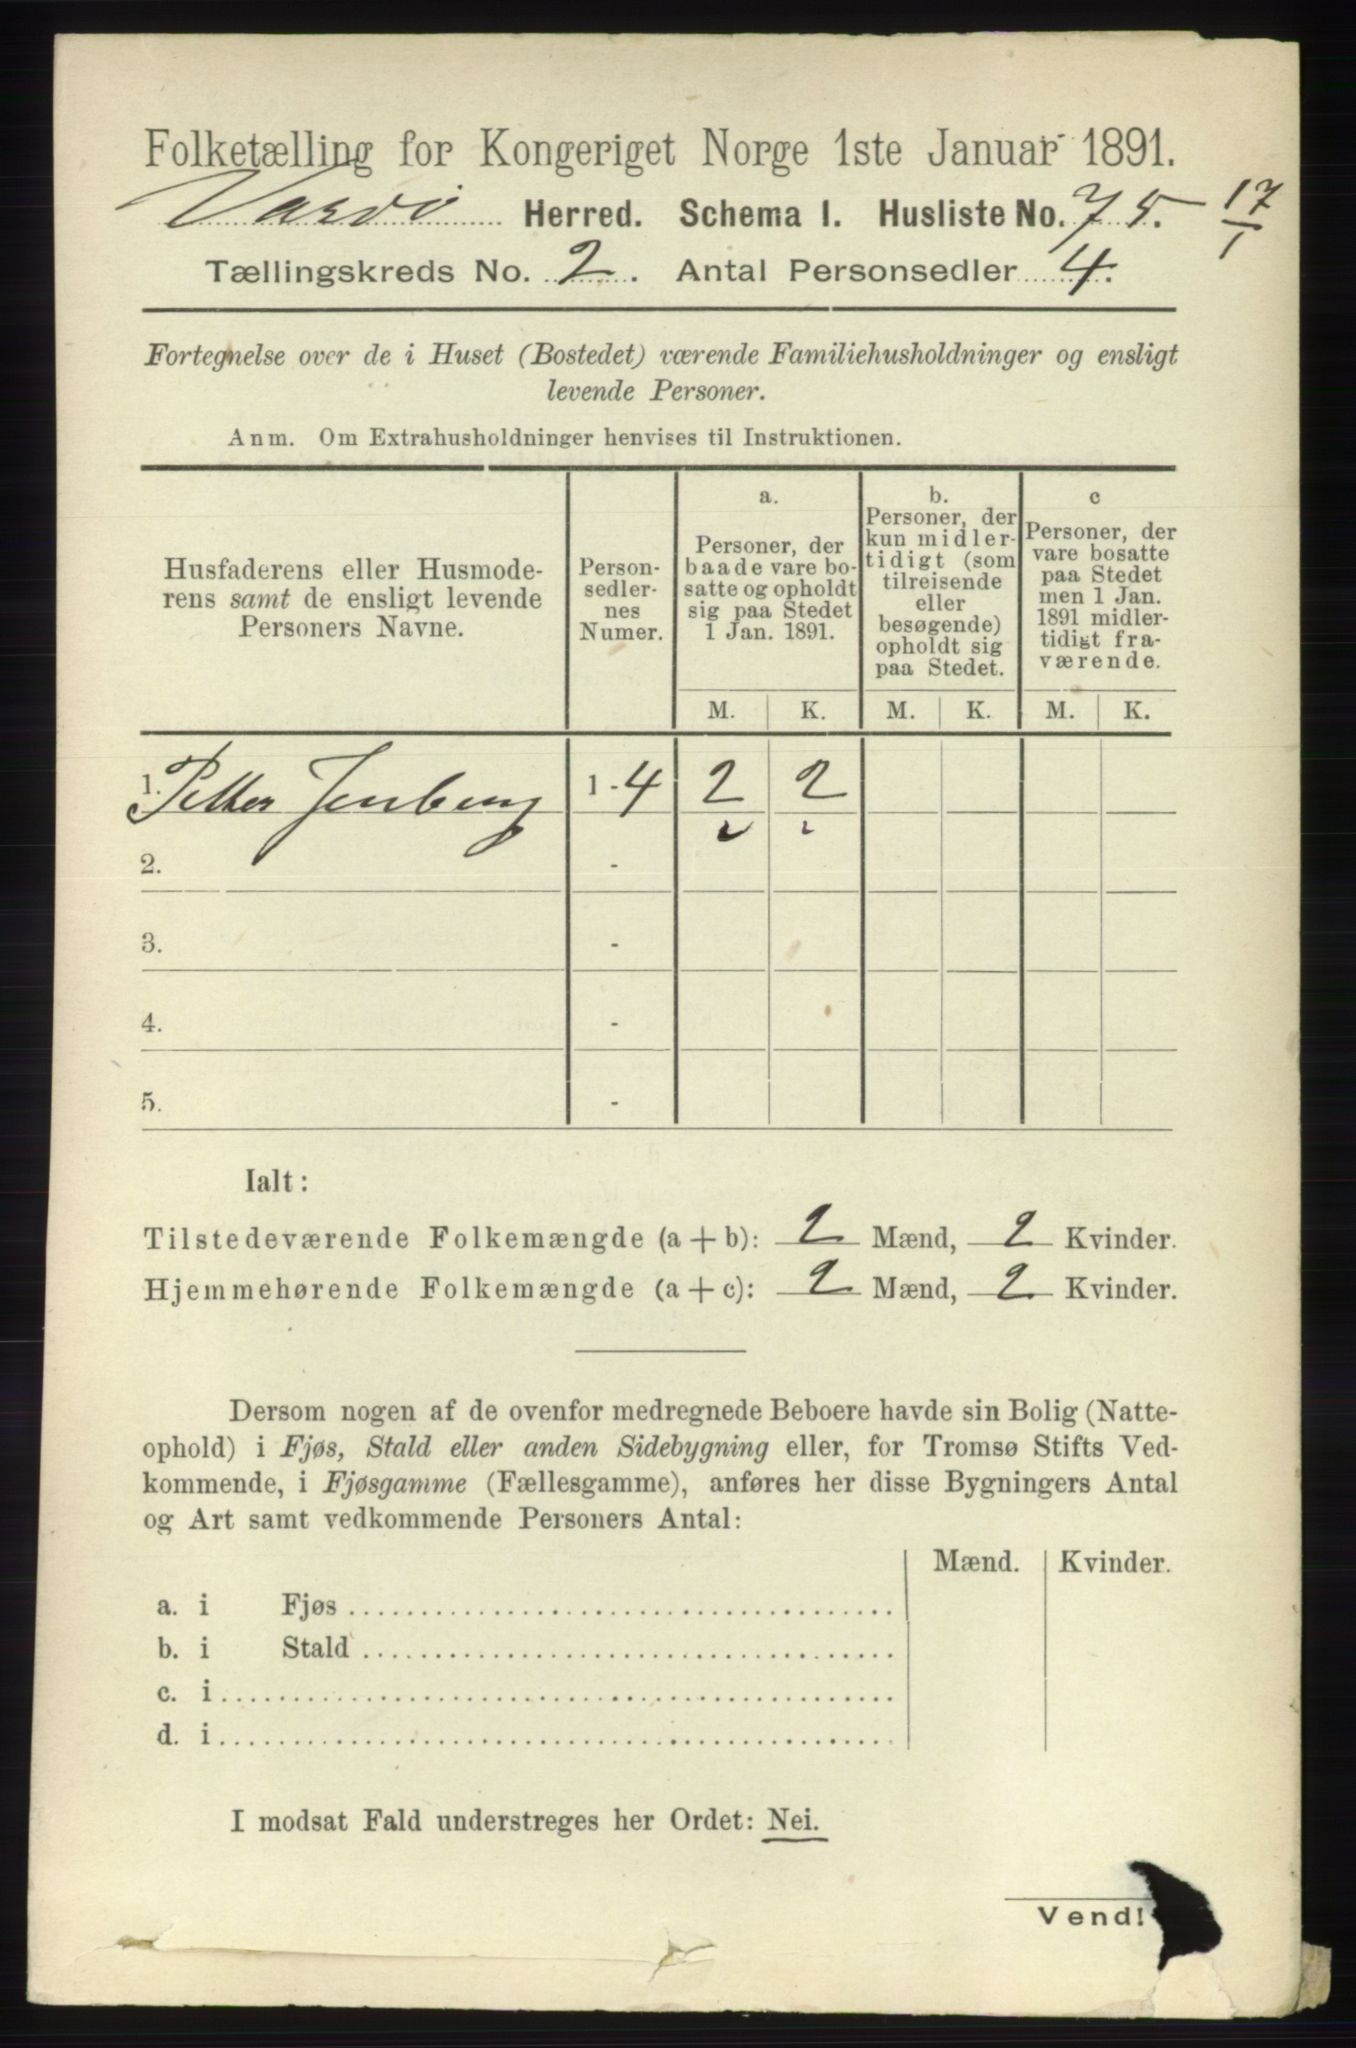 Folketælling for Kongeriget Norge 1ste Januar 1891.
Vardø Herred. Schema I. Husliste No. 75. 17/1
Tællingskreds No. 2. Antal Personsedler 4.
Fortegnelse over de i Huset (Bostedet) værende Familiehusholdninger og ensligt
levende Personer.
Anm. Om Extrahusholdninger henvises til Instruktionen.
Husfaderens eller Husmode-
rens samt de ensligt levende
Personers Navne.
Person-
sedler-
nes
Numer.
a.
Personer, der
baade vare bo-
satte og opholdt
sig paa Stedet
1 Jan. 1891.
b.
Personer, der
kun midler-
tidigt (som
tilreisende
eller
besøgende)
opholdt sig
paa Stedet.
c
Personer, der
vare bosatte
paa Stedet
men 1 Jan.
1891 midler-
tidigt fra-
værende.
M. K. M. K. M. K.
1. Petter 1-4 2 2
2. -
3. -
4. -
5. -
Ialt:
Tilstedeværende Folkemængde (a + b): 2 Mænd, 2 Kvinder.
Hjemmehørende Folkemængde (a + c): 2 Mænd, 2 Kvinder.
Dersom nogen af de ovenfor medregnede Beboere havde sin Bolig (Natte-
ophold) i Fjøs, Stald eller anden Sidebygning eller, for Tromsø Stifts Ved-
kommende, i Fjøsgamme (Fællesgamme), anføres her disse Bygningers Antal
og Art samt vedkommende Personers Antal:
Mænd. Kvinder.
a. i Fjøs
b. i Stald
c. i
d. i
I modsat Fald understreges her Ordet: Nei.
Vend!